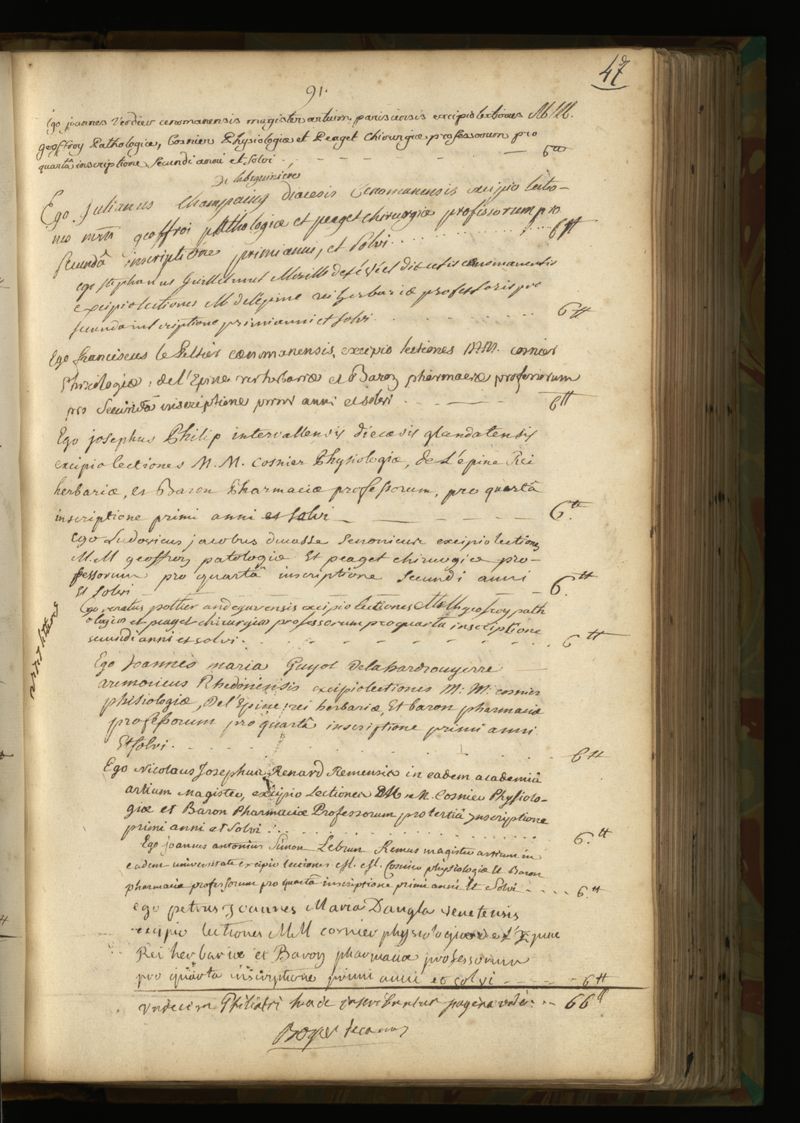 47
91.
Ego joannes Verdier cenomanensis magister artium parisiensis excipio lectiones M.M.
geoffroy Pathologiæ, Cosnier Physiologiæ et Peaget Chirurgiæ professorum pro
quartâ inscriptione secundi anni et solvi - - - - 6ᵗᵗ
Ego Julianus Champaing diœcesis Cenomanensis excipio lectio-
nes geoffroi pathologiæ et peaget chirurgiæ professorum pro
secundâ inscriptione primi anni, et solvi . . . . . . 6ᵗᵗ
ego stephanus Guillelmus diœcesis cenomanensis
excipio lectiones M delépine rei herbariæ professoris pro
secunda inscriptione primi anni et solvi . . . 6ᵗᵗ
Ego franciscus le Peltier cænomanensis, excipio lectiones M.M. cosnier
Phisiologiæ, de l'Epine rei herbariæ et Baron pharmaciæ professorum
pro secundâ inscriptione primi anni et solvi . - - - 6ᵗᵗ
Ego josephus Philip intervallensis diœcesis glandatensis
excipio lectiones M.M. Cosnier Physiologiæ, de L'épine Rei
herbariæ, et Baron Pharmaciæ professorum, pro quartâ
inscriptione primi anni et solvi - - - - 6.ᵗᵗ
Ego Ludovicus jacobus ducasse excipio lectiones
M.M geoffroy patologiæ Et peaget chirurgiæ pro-
fessorum pro quartâ inscriptione secundi anni
Et solvi - - - - 6.ᵗᵗ
Ego renatus pottier andegavensis excipio lectiones M.M geofroy path
ologiæ et peaget chirurgiæ professorum pro quarta inscriptione
secundi anni et solvi . - - - - 6ᵗᵗ
Ego Joannes maria Guyot Delahardrouyerre
aremoricus Rhedonensis excipio lectiones M.M. cosnier
phisiologiæ, Del'Epine rei herbariæ, Et baron pharmaciæ
professorum pro quartâ inscriptione primi anni
Et solvi . . . . . . . 6ᵗᵗ
Ego Nicolaus Josephus Renard Remensis in eadem academiâ
artium magister, excipio Lectiones M M. Cosnier Physiolo-
giæ et Baron Pharmaciæ Professorum pro tertiâ inscriptione
primi anni et solvi . . . . . . . 6.ᵗᵗ
Ego joannes antonius Simon Lebrun Remus magister artium in
eadem universitate excipio lectiones M. M. Cosnier physiologiæ et Baron
pharmaciæ professorum pro quartâ inscriptione primi anni et solvi - - - - 6.ᵗᵗ
ego petrus joannes Maria Dangla venetensis
excipio lectiones MM cornier physiologiæ de l'Epine
Rei herbariæ et Baron pharmaciæ professorum
pro quarta inscriptione primi anni et solvi - - - - 6ᵗᵗ
undecim Philiatri hac inscribuntur pagina - - 66ᵗᵗ
Boyer decanus